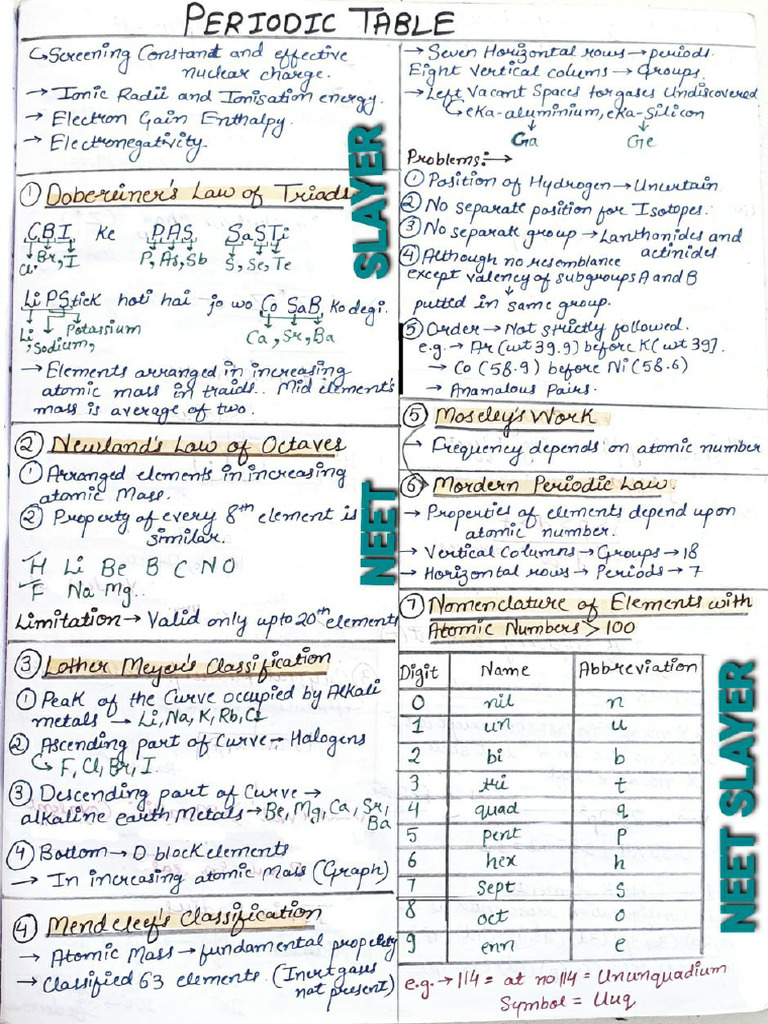 PERIODIC TABLE
↳ Screening Constant and effective
nuclear charge.
→ Ionic Radii and Ionisation energy.
→ Electron Gain Enthalpy.
→ Electronegativity.
① Dobereiner's Law of Triads
CBI ke PAS SaSTi
Cl Br, I P, As, Sb S, Se, Te
Li PStick hoti hai jo wo Co SaB, ko degi.
Li, Sodium, Potassium Ca, Sr, Ba
→ Elements arranged in increasing
atomic mass in traids. Mid element's
mass is average of two.
② Newland's Law of Octaves
① Arranged elements in increasing
atomic Mass.
② Property of every 8th element is
similar.
H Li Be B C N O
F Na Mg..
Limitation → Valid only upto 20th elements
③ Lother Meyer's Classification
① Peak of the Curve occupied by Alkali
metals → Li, Na, K, Rb, Cs
② Ascending part of Curve → Halogens
↳ F, Cl, Br, I.
③ Descending part of Curve →
alkaline earth Metals → Be, Mg, Ca, Sr,
Ba
④ Bottom → D block elements
→ In increasing atomic Mass (Graph)
④ Mendeleef's Classification
→ Atomic Mass → fundamental property
→ Classified 63 elements. (Inert gases
not present)
→ Seven Horizontal rows → periods.
Eight vertical colums → Groups.
→ Left Vacant Spaces for gases Undiscovered
↳ eka-aluminium, eka-silicon
Ga Ge
Problems:→
① Position of Hydrogen → Uncertain
② No separate position for Isotopes.
③ No separate group → Lanthonides and
actinides
④ Although no resemblance
except valency of subgroups A and B
putted in same group.
⑤ Order → Not strictly followed.
e.g. → Ar (wt 39.9) before K (wt 39].
→ Co (58.9) before Ni (58.6)
→ Anamalous Pairs.
⑤ Moseley's Work
→ Frequency depends on atomic number
⑥ Mordern Periodic Law.
→ Properties of elements depend upon
atomic number.
→ Vertical Columns → Groups → 18
→ Horizontal rows → Periods → 7
⑦ Nomenclature of Elements with
Atomic Numbers > 100
Digit Name Abbreviation
0 nil n
1 un u
2 bi b
3 tri t
4 quad q
5 pent p
6 hex h
7 sept s
8 oct o
9 enn e
e.g. → 114 = at no 114 = Ununquadium
Symbol = Uuq
SLAYER
NEET
NEET SLAYER